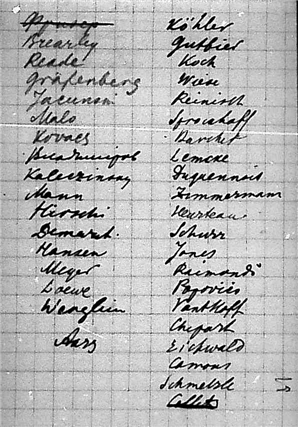 Brearley
Reade
Gräfenberg
Malo
Kovacs
Владимиров
Kaleczinszky
Mann
Hirochi
Demarest
Hansen
Meyer
Loewe
Wenglein
Aars
Köhler
Gutbier
Koch
Wiese
Reinisch
Sprockhoff
Barchet
Lemcke
Duquennois
Zimmermann
Heurteau
Schurr
Jones
Raimondi
Popovici
Vant Hoff
Chepart
Eichwald
Camous
Schmelzle